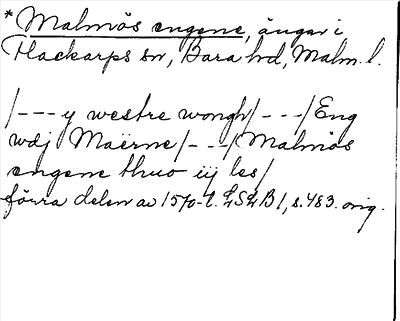 * Malmös engene, ängar i
Flackarps sn, Bara hd, Malm. l.
/--- y westre wongh/---/Eng
wdj Maërne/---/Malmös
engene thuo iij les/
förra delen av 1570-t. LSLB I, s. 483. orig.